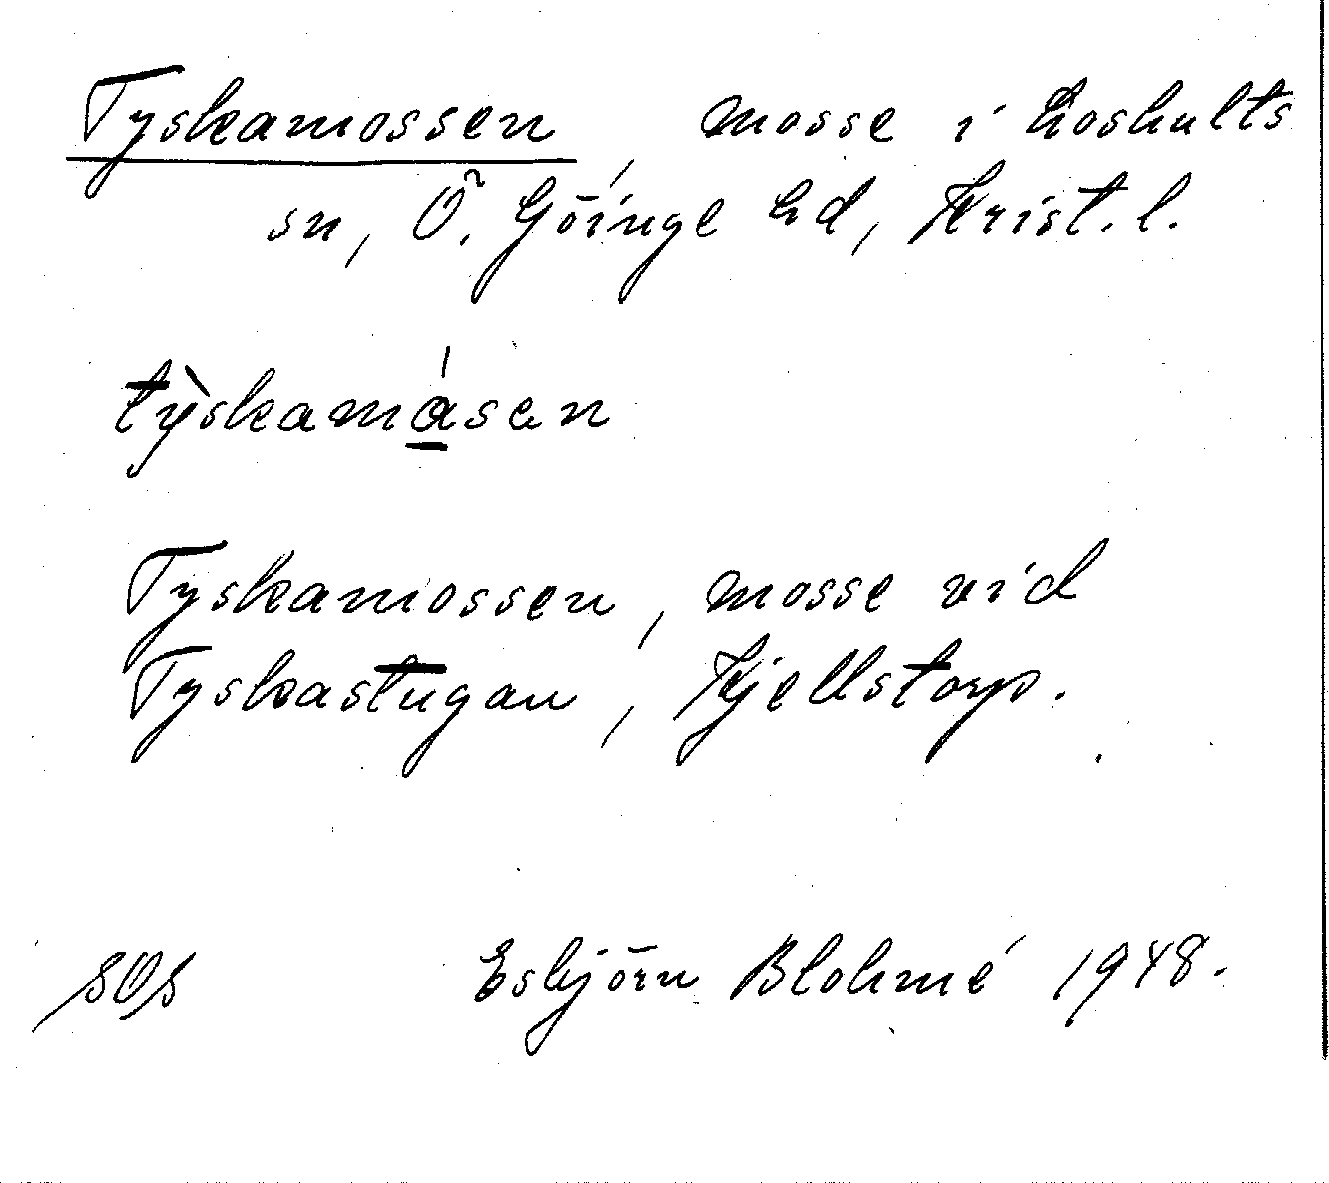 Tyskamossen, mosse i Loshults
sn, Ö. Göinge hd, Krist. l.
tỳskamásen
Tyskamossen, mosse vid
Tyskastugan, Kjellstorp.
SOS Esbjörn Blohmé 1948.